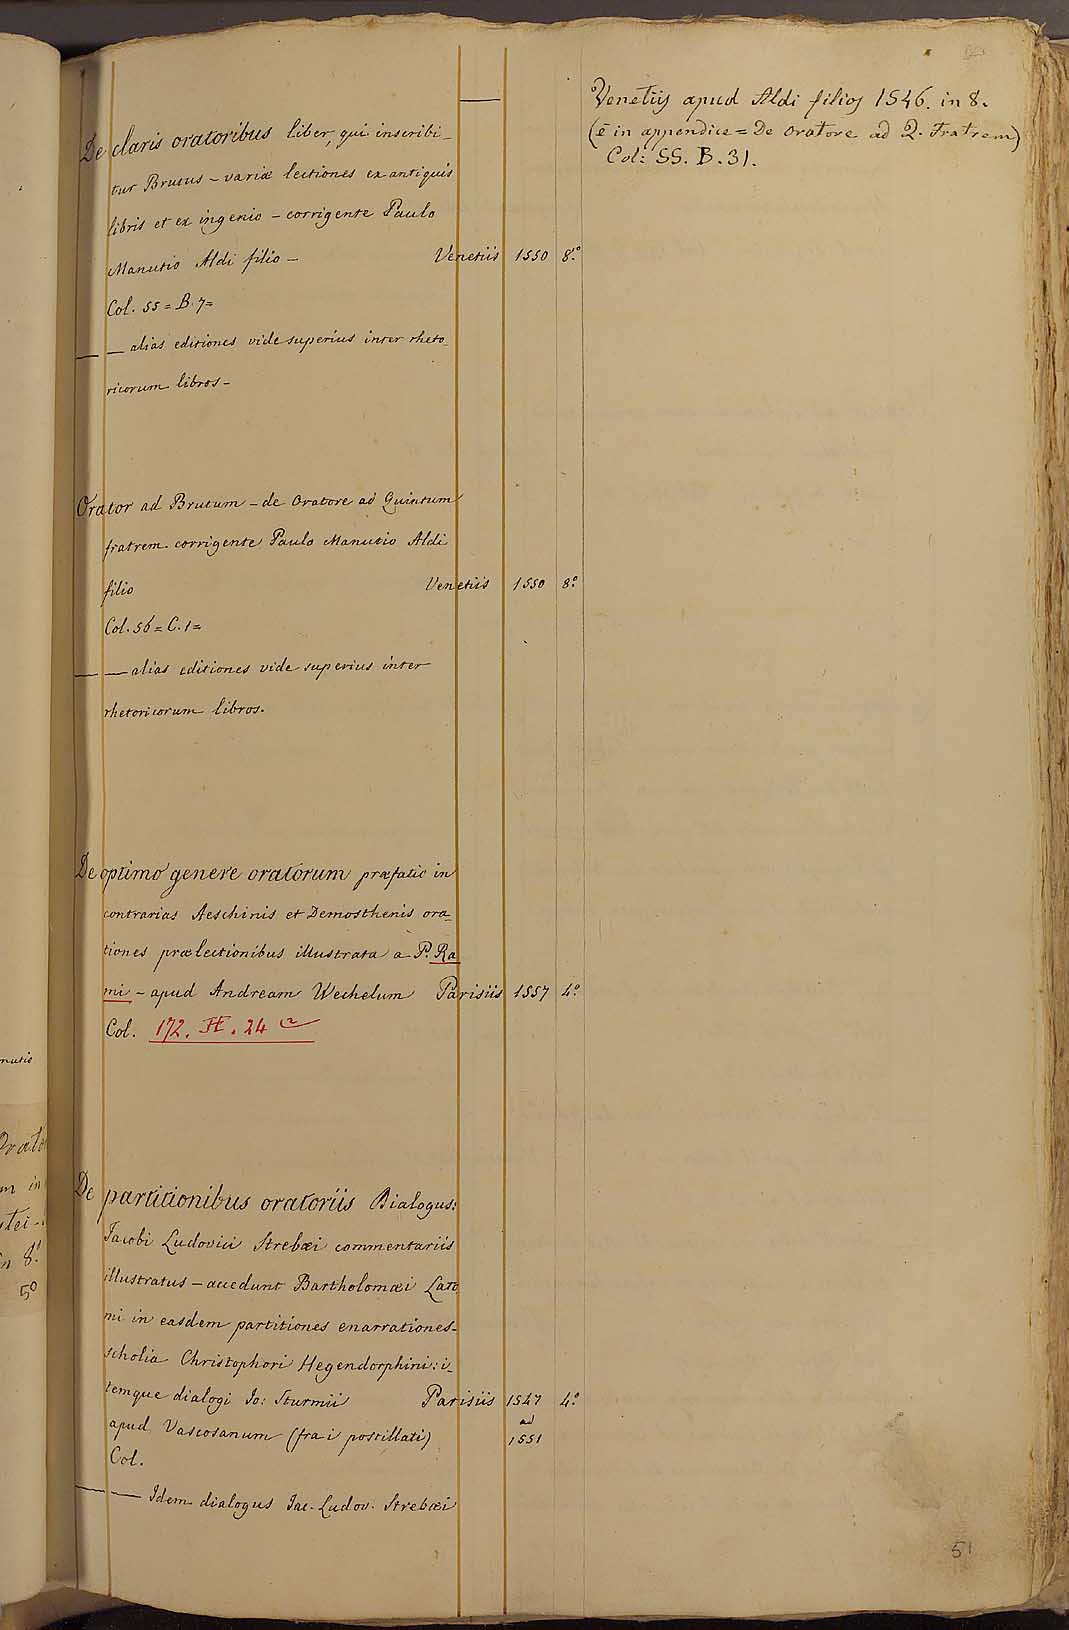 De claris oratoribus liber, qui inscribi_
tur Brutus – variæ lectiones ex antiquis
libris et ex ingenio – corrigente Paulo
Manutio Aldi filio – Venetiis 1550 8.º
Col. 55 = B. 7 =
— — alias editiones vide superius inter rheto_
ricorum libros –
Orator ad Brutum – de Oratore ad Quintum
fratrem corrigente Paulo Manutio Aldi
filio Venetiis 1550 8.º
Col. 56 = C. 1 =
— — alias editiones vide superius inter
rhetoricorum libros.
De optimo genere oratorum præfatio in
contrarias Aeschinis et Demosthenis ora_
tiones prælectionibus illustrata a P. Ra
mi – apud Andream Wechelum Parisiis 1557 4.º
Col. 172. H. 24
De partitionibus oratoriis Dialogus:
Jacobi Ludovici Strebæi commentariis
illustratus – accedunt Bartholomæi Lato
mi in easdem partitiones enarrationes –
scholia Christophori Hegendorphini: i_
temque dialogi Io: Sturmii Parisiis 1547 4.º
ad
apud Vascosanum (fra i postillati) 1551
Col.
— — Idem dialogus Iac. Ludov. Strebæi
—
Venetiis apud Aldi filios 1546. in 8.
(è in appendice = De Oratore ad Q. Fratrem)
Col: SS. B. 31.
51
nutio
Orato
m in
tei -
in 8.
50